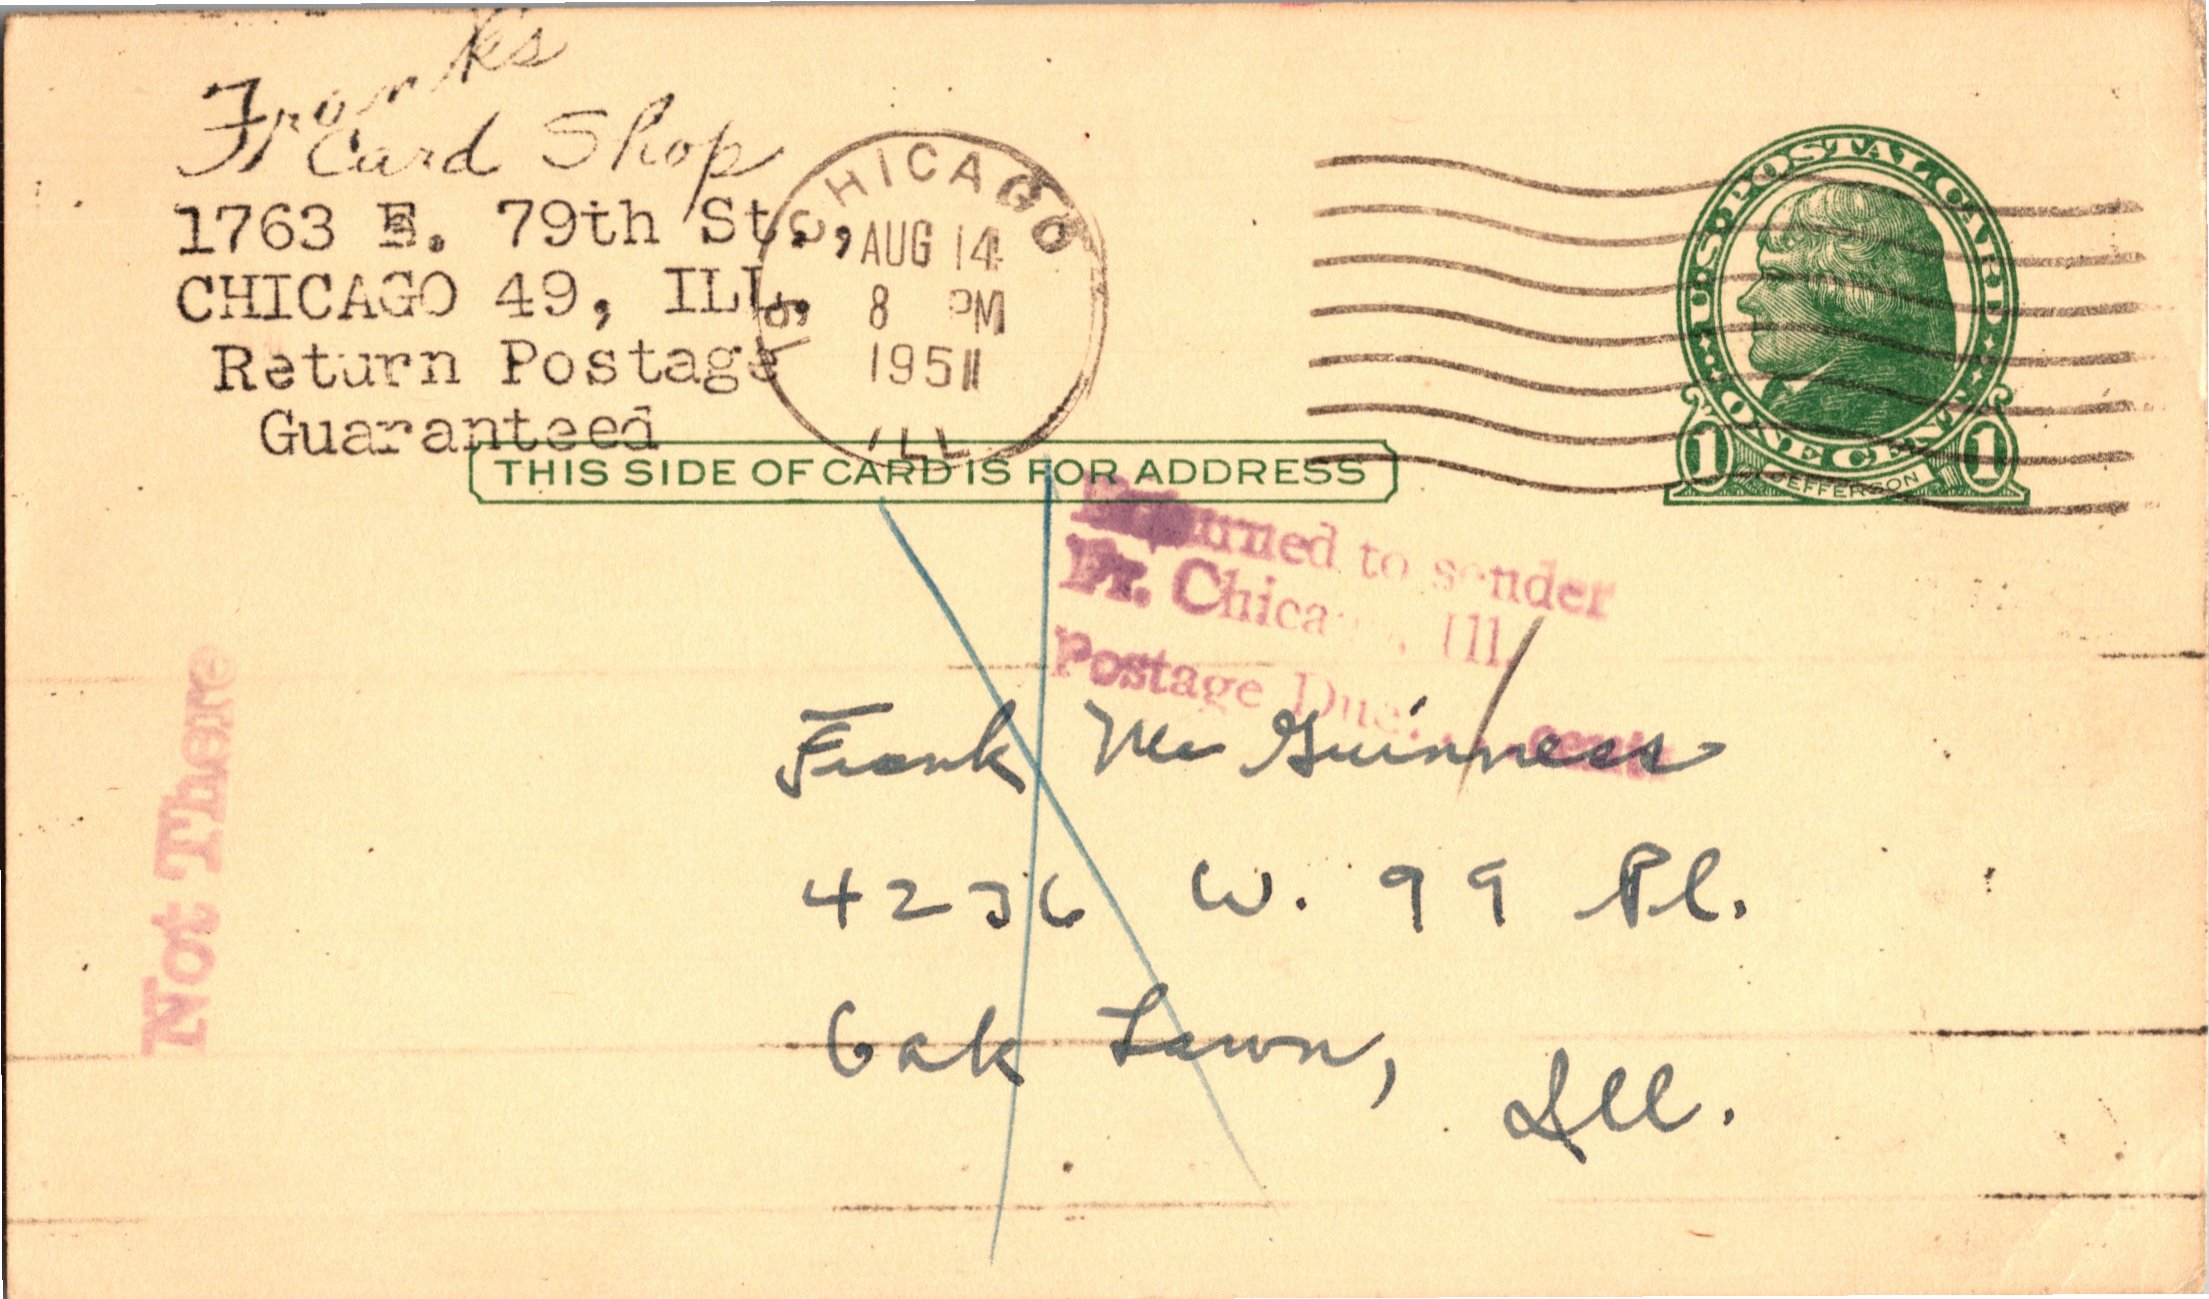 Frank's
Card Shop
1763 E. 79th St.,
CHICAGO 49, ILL.
Return Postage
Guaranteed
CHICAGO
AUG 14
8 PM
1951
ILL
U.S. POSTAL CARD
ONE CENT
1 JEFFERSON 1
THIS SIDE OF CARD IS FOR ADDRESS
Returned to sender
Fr. Chicago, Ill.
Postage Due cents
Not There
Frank McGuinness
4236 W. 99 Pl.
Oak Lawn,
Ill.